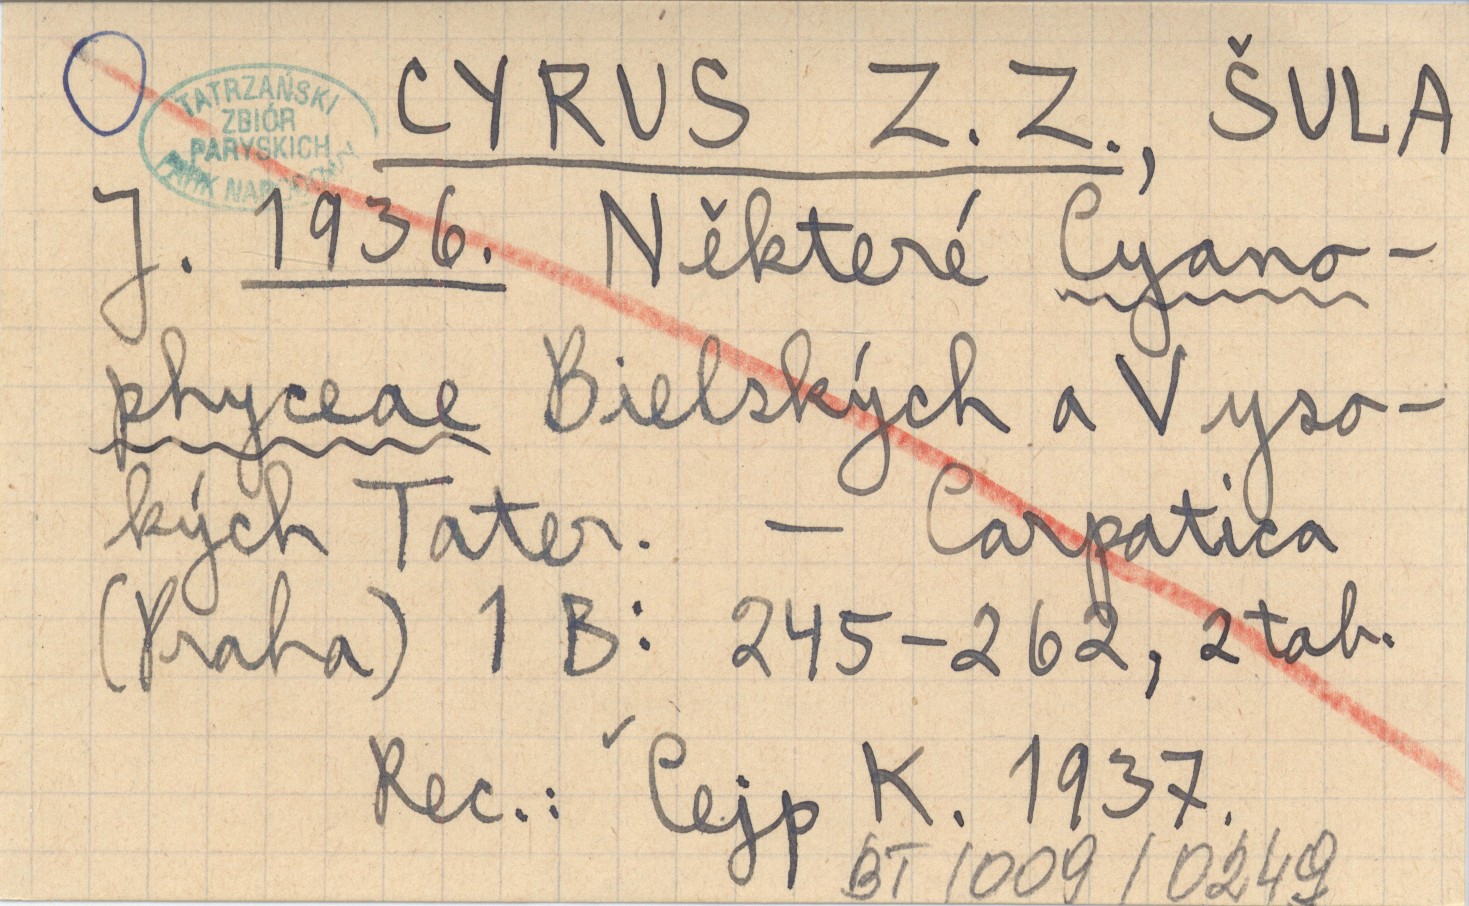 TATRZAŃSKI
ZBIÓR
PARYSKICH
PARK NARODOWY
CYRUS Z. Z., ŠULA
J. 1936. Některé Cyano-
phyceae Bielských a Vyso-
kých Tater. — Carpatica
(Praha) 1 B: 245-262, 2 tab.
Rec.: Čejp K. 1937.
BT / 009 / 0249